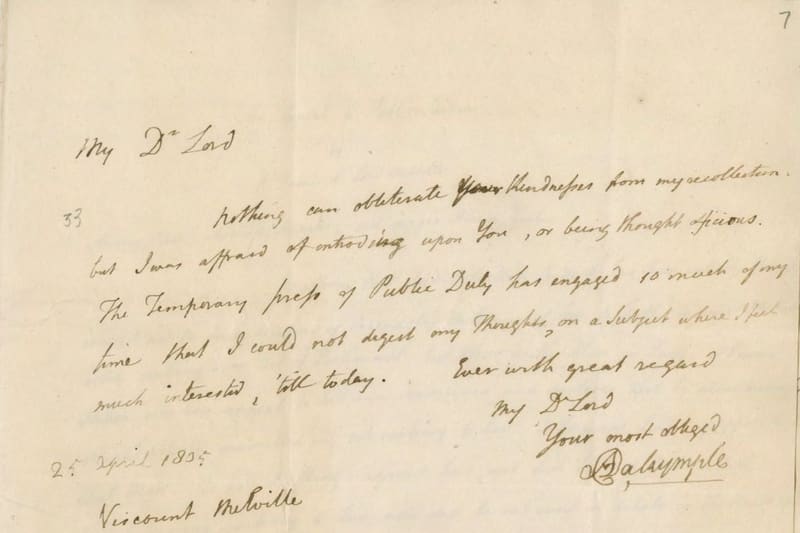 7
My Dr Lord
33
Nothing can obliterate Your Kindnesses from my recollection.
but I was affraid of introding upon You, or being thought oficious.
The Temporary press of Public Duty has engaged so much of my
time that I could not digest my Thoughts, on a Subject where I feel
much interested, 'till today. Ever with great regard
My Dr Lord
Your most obliged
ADalrymple
25 April 1805
Viscount Melville